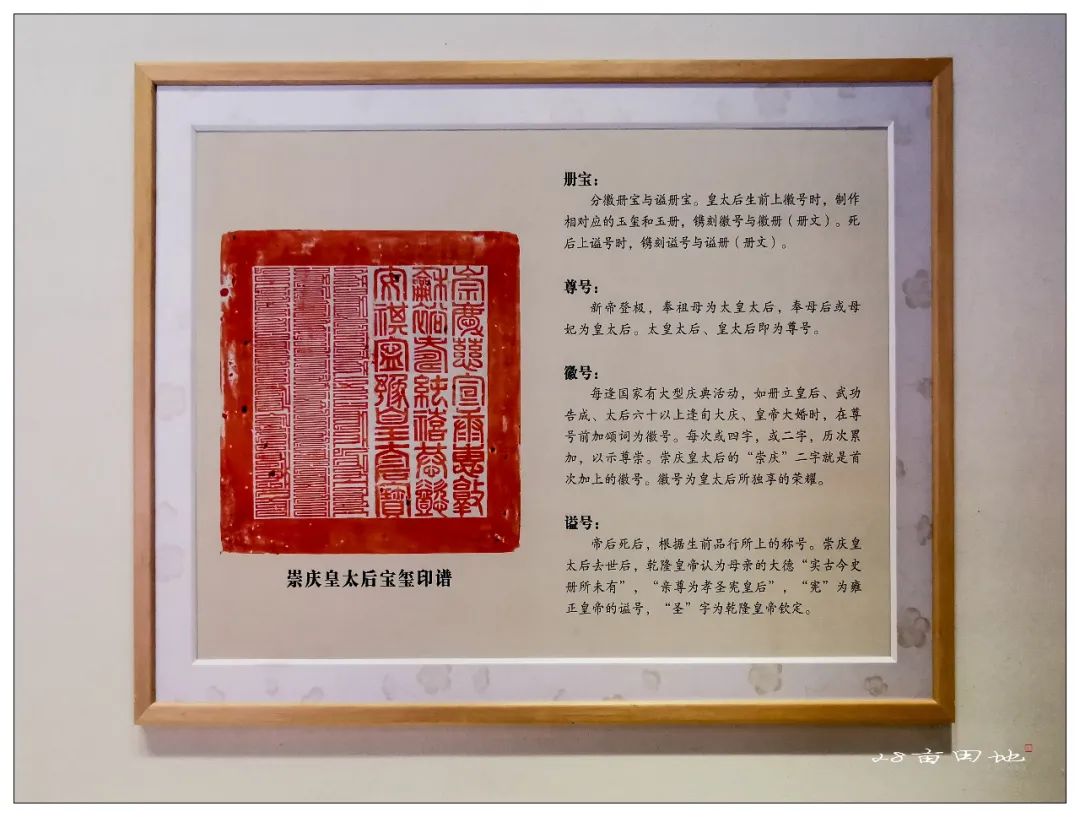 崇慶慈宣康惠敦
和裕壽純禧恭懿
安祺寧豫皇太后寶
崇庆皇太后宝玺印谱
册宝：
分徽册宝与谥册宝。皇太后生前上徽号时，制作
相对应的玉玺和玉册，镌刻徽号与徽册（册文）。死
后上谥号时，镌刻谥号与谥册（册文）。
尊号：
新帝登极，奉祖母为太皇太后，奉母后或母
妃为皇太后。太皇太后、皇太后即为尊号。
徽号：
每逢国家有大型庆典活动，如册立皇后、武功
告成、太后六十以上逢旬大庆、皇帝大婚时，在尊
号前加颂词为徽号。每次或四字，或二字，历次累
加，以示尊崇。崇庆皇太后的“崇庆”二字就是首
次加上的徽号。徽号为皇太后所独享的荣耀。
谥号：
帝后死后，根据生前品行所上的称号。崇庆皇
太后去世后，乾隆皇帝认为母亲的大德“实古今史
册所未有”，“亲尊为孝圣宪皇后”，“宪”为雍
正皇帝的谥号，“圣”字为乾隆皇帝钦定。
28亩田地